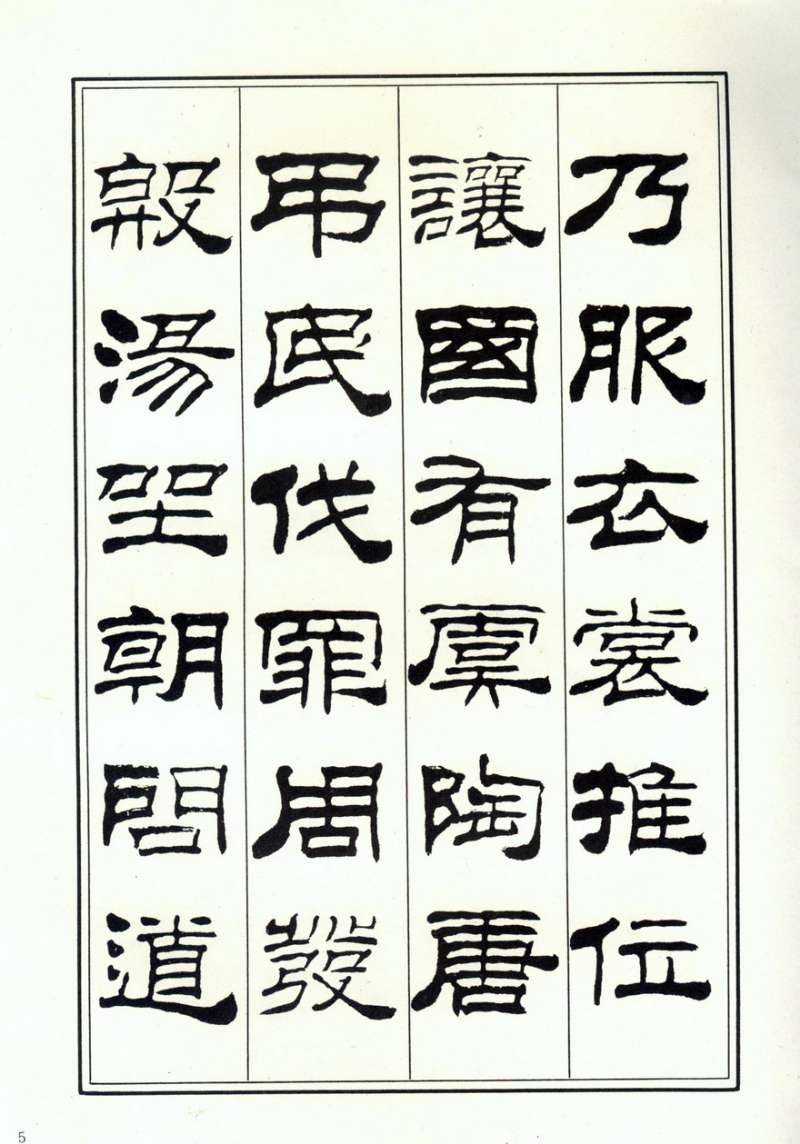 乃服衣裳推位
讓國有虞陶唐
弔民伐罪周發
殷湯坐朝問道
5